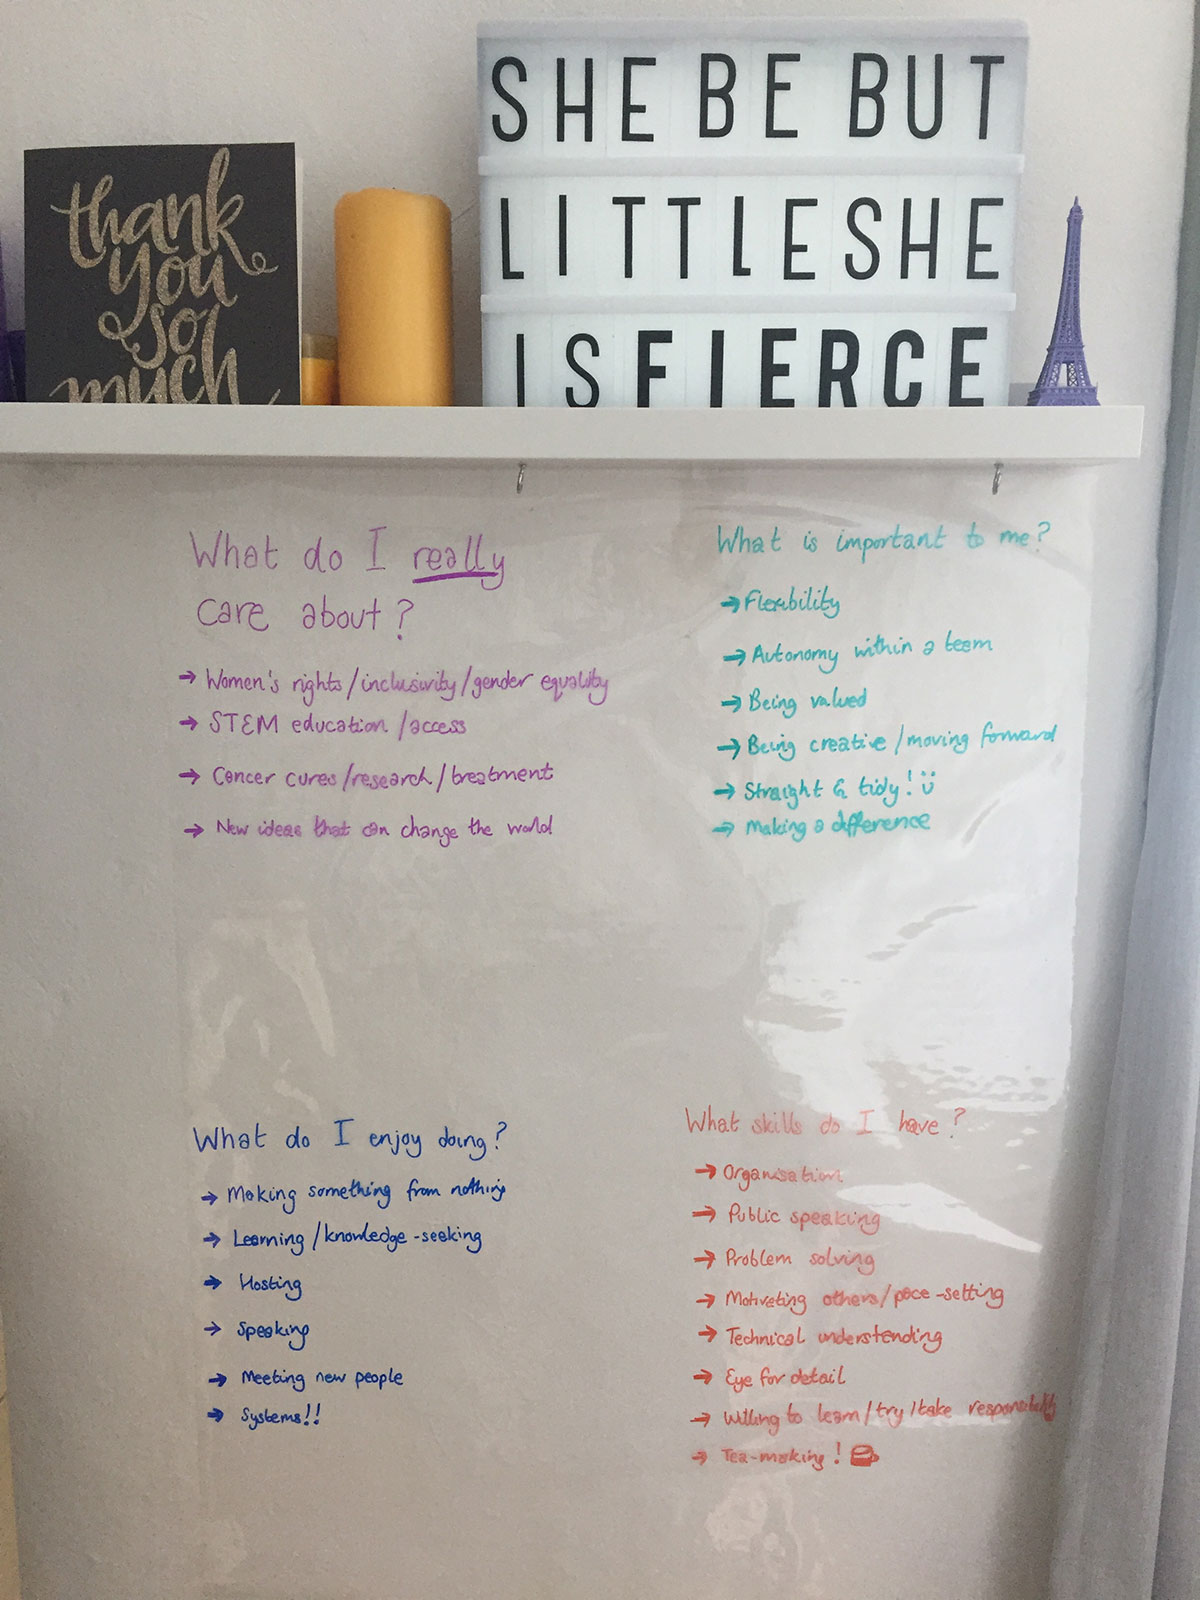 SHE BE BUT
LITTLESHE
IS FIERCE
thank
you
so
much
What do I really
care about?
→ Women's rights/inclusivity/gender equality
→ STEM education/access
→ Cancer cures/research/treatment
→ New ideas that can change the world
What is important to me?
→ Flexibility
→ Autonomy within a team
→ Being valued
→ Being creative/moving forward
→ Straight & tidy! ü
→ Making a difference
What do I enjoy doing?
→ Making something from nothing
→ Learning/knowledge-seeking
→ Hosting
→ Speaking
→ Meeting new people
→ Systems!!
What skills do I have?
→ Organisation
→ Public speaking
→ Problem solving
→ Motivating others/pace-setting
→ Technical understanding
→ Eye for detail
→ Willing to learn/try/take responsibility
→ Tea-making!